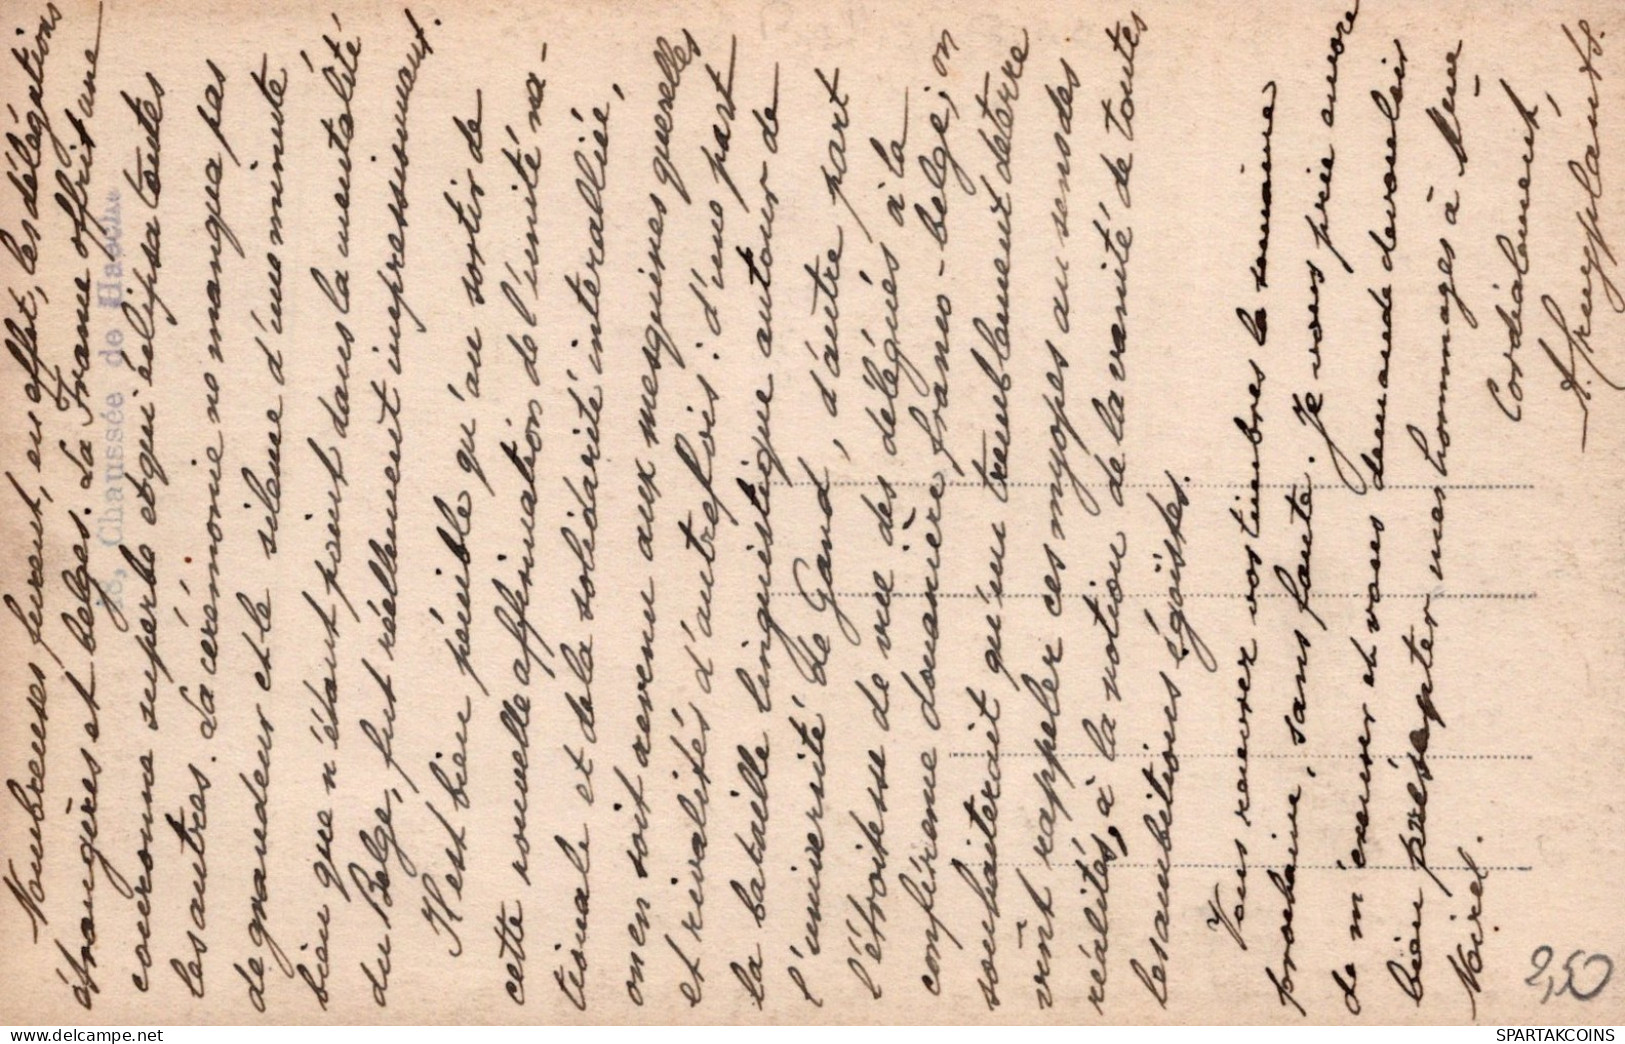 Nombreuses furent, en effet, les délégations
étrangères et belges. La France offrit une
couronne superbe et qui éclipsa toutes
les autres. La cérémonie ne manqua pas
de grandeur et le silence d'une minute
bien que n'étant point dans la mentalité
du Belge, fut réellement impressionnant.
Il est bien pénible qu'au sortir de
cette nouvelle affirmation de l'unité na-
tionale et de la solidarité interalliée,
on en soit revenu aux mesquines querelles
et rivalités d'autrefois: d'une part
la bataille linguistique autour de
l'université de Gand, d'autre part
l'étroitesse de vue des délégués à la
conférence douanière franco-belge; on
souhaiterait qu'un tremblement de terre
vînt rappeler ces myopes au sens des
réalités, à la notion de la vanité de toutes
les ambitions égoïstes.
Vous recevrez vos timbres la semaine
prochaine, sans faute. Je vous prie encore
de m'excuser et vous demande de vouloir
bien présenter mes hommages à Mme
Noirel.
Cordialement,
28, Chaussée de Haecht
2,50
SPARTAKCOINS